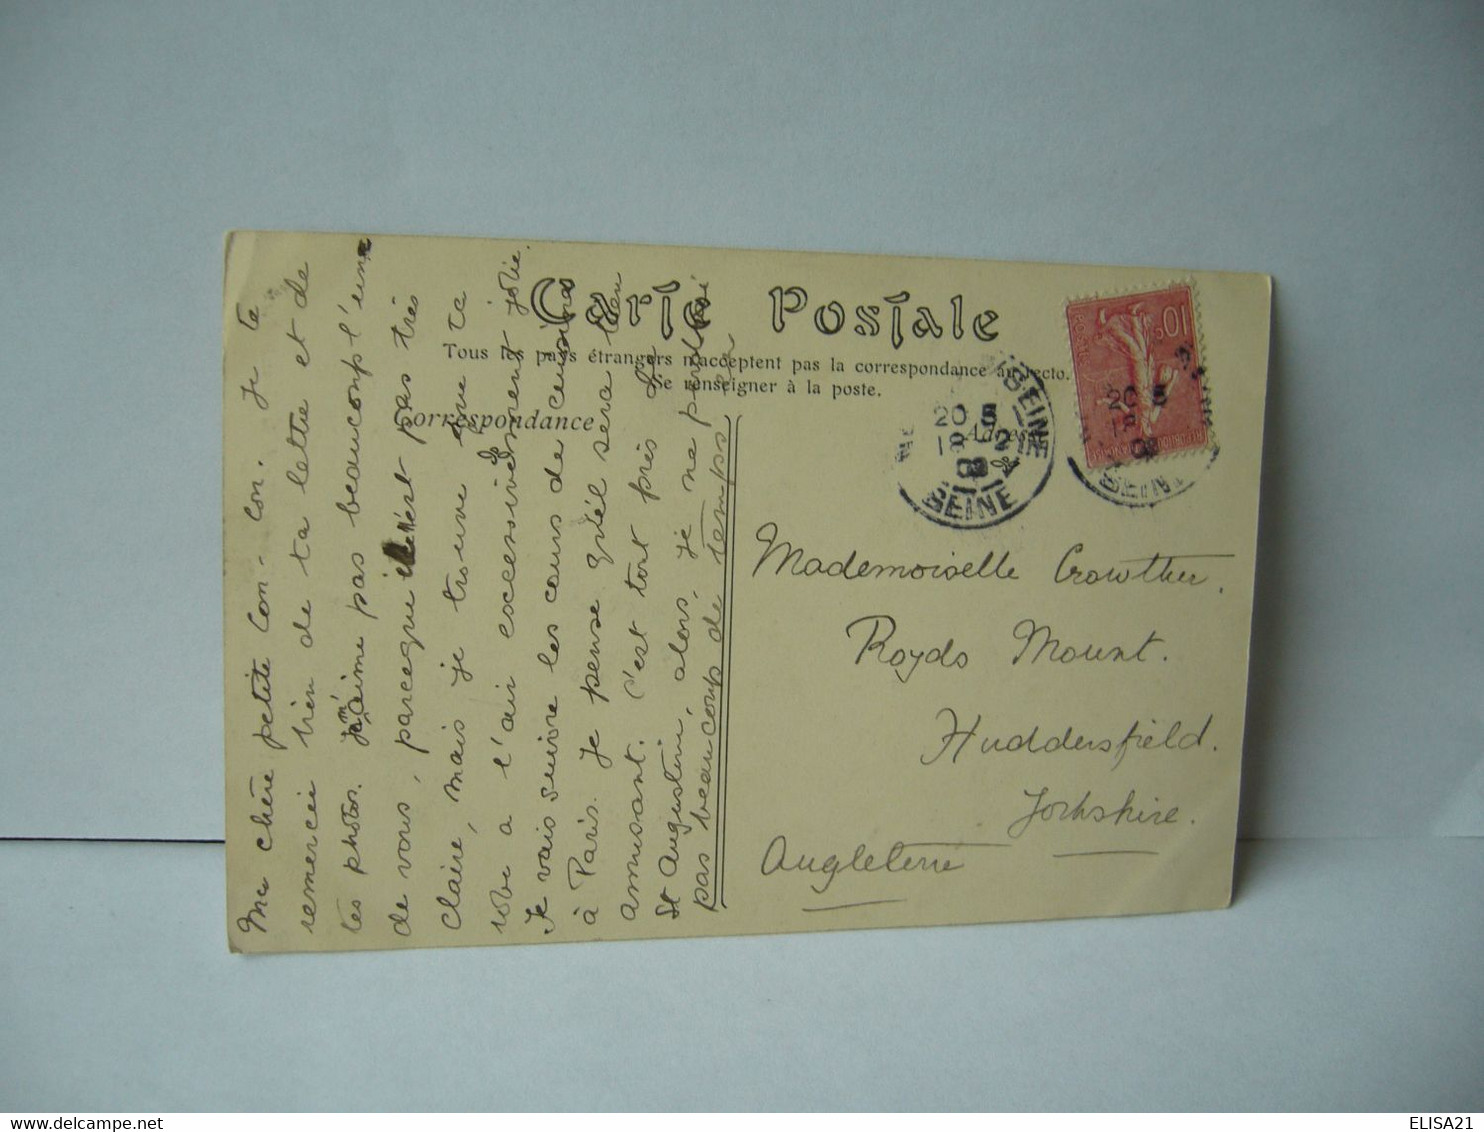 Carte Postale
Tous les pays étrangers n'acceptent pas la correspondance au recto.
Se renseigner à la poste.
Correspondance
Adresse
Ma chère petite Con-Con. Je te
remercie bien de ta lettre et de
les photos. Je m'aime pas beaucoup l'une
de vous, parceque il n'est pas très
claire, mais je trouve que ta
robe a l'air excessivement jolie.
Je vais suivre les cours de cuisine
à Paris. Je pense qu'él sera bien
amusant. C'est tout près de
St Augustin, alors, je ne perdrai
pas beaucoup de temps
Mademoiselle Crowther.
Royds Mount.
Huddersfield.
Yorkshire.
Angleterre
SEINE
20 5
SEINE
20 5
SEINE
10c
POSTES
ELISA21